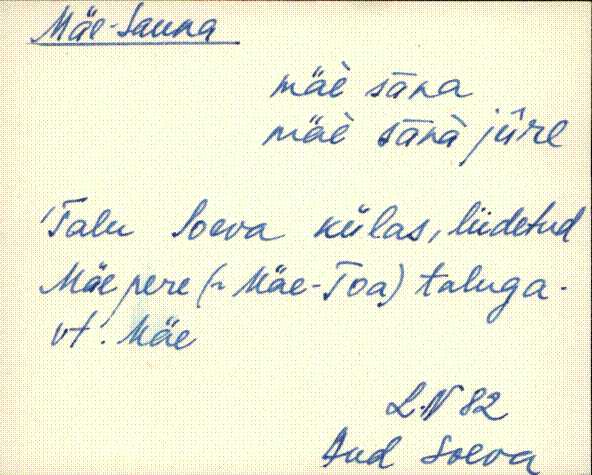 Mäe-Sauna
mäè sāna
mäè sānà jûre
Talu Soeva külas, liidetud
Mäepere (~ Mäe-Toa) taluga.
vt. Mäe
L.N 82
Aud Soeva